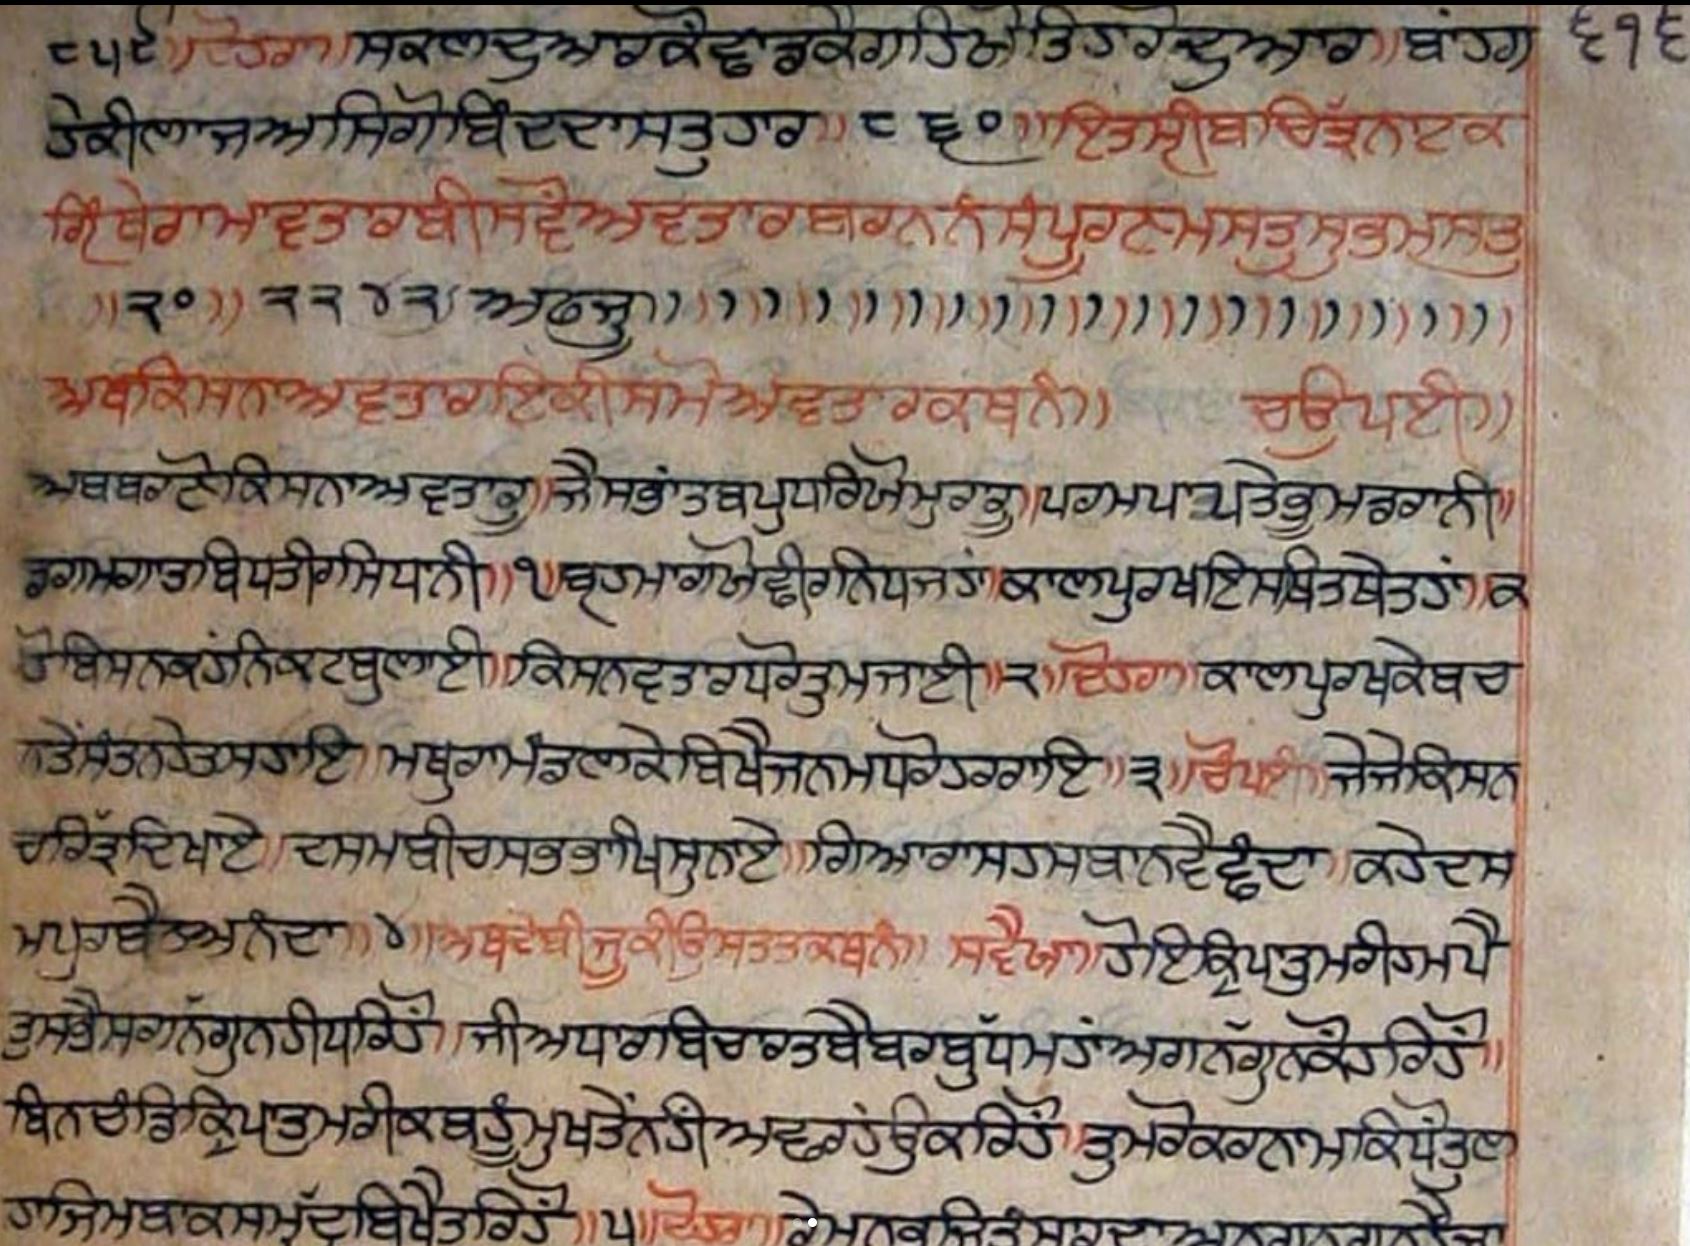 ੬੧੬
੮੫੯॥ਦੋਹਰਾ॥ਸਕਲਦੁਆਰਕੌਛਾਡਕੈਗਹਿਓਤਿਹਾਰੋਦੁਆਰ॥ਬਾਂਹਗ
ਹੇਕੀਲਾਜਅਸਿਗੋਬਿੰਦਦਾਸਤੁਹਾਰ॥੮੬੦॥ਇਤਸ੍ਰੀਬਚਿੱਤ੍ਰਨਾਟਕ
ਗ੍ਰਿੰਥੇਰਾਮਾਵਤਾਰਬੀਸਵੈਂਅਵਤਾਰਬਰਨਨੰਸੰਪੂਰਣਮਸਤੁਸੁਭਮਸਤੁ
॥੨੦॥੨੨੪੨ਅਫਜੂ॥
ਅਥਕਿਸਨਾਅਵਤਾਰਇਕੀਸਮੋਅਵਤਾਰਕਥਨੰ॥ ਚਉਪਈ॥
ਅਬਬਰਣੋਕਿਸਨਾਅਵਤਾਰੂ॥ਜੈਸਭਾਂਤਬਪੁਧਰਿਓਮੁਰਾਰੂ॥ਪਰਮਪਾਪਤੇਭੂਮਡਰਾਨੀ॥
ਡਗਮਗਾਤਬਿਧਤੀਰਸਿਧਾਨੀ॥੧॥ਬ੍ਰਹਮਾਗਓਛੀਰਨਿਧਜਹਾਂ॥ਕਾਲਪੁਰਖਇਸਥਿਤਥੇਤਹਾਂ॥ਕ
ਹੋਬਿਸਨਕਹੰਨਿਕਟਬੁਲਾਈ॥ਕਿਸਨਵਤਾਰਧਰੋਤੁਮਜਾਈ॥੨॥ਦੋਹਰਾ॥ਕਾਲਪੁਰਖਕੇਬਚ
ਨਤੇਂਸੰਤਨਹੇਤਸਹਾਇ॥ਮਥੁਰਾਮੰਡਲਕੇਬਿਖੈਜਨਮਧਰੋਹਰਰਾਇ॥੩॥ਚੌਪਈ॥ਜੇਜੇਕਿਸਨ
ਚਰਿੱਤ੍ਰਦਿਖਾਏ॥ਦਸਮਬੀਚਸਭਭਾਖਿਸੁਨਾਏ॥ਗਿਆਰਾਸਹਸਬਾਨਵੈਛੰਦਾ॥ਕਹੇਦਸ
ਮਪੁਰਬੈਠਅਨੰਦਾ॥੪॥ਅਥਦੇਬੀਜੂਕੀਉਸਤਤਕਥਨੰ॥ਸਵੈਯਾ॥ਹੋਇਕ੍ਰਿਪਤੁਮਰੀਹਮਪੈ
ਤੁਸਭੈਸਗਨੰਗੁਨਹੀਧਰਿਹੌਂ॥ਜੀਅਧਾਰਬਿਚਾਰਤਬੈਬਰਬੁੱਧਮਹਾਂਅਗਨੰਗੁਨਕੌਹਰਿਹੌਂ॥
ਬਿਨਚੰਡਿਕ੍ਰਿਪਤੁਮਰੀਕਬਹੂੰਮੁਖਤੇਂਨਹੀਂਅਛਰਹਉਂਕਰਿਹੌਂ॥ਤੁਮਰੋਕਰਨਾਮਕਿਧੌਤੁਲ
ਹਾਜਿਮਬਾਕਸਮੁੱਦ੍ਰਬਿਖੈਤਰਿਹੌਂ॥੫॥ਦੋਹਰਾ॥ਰੇਮਨਭਜਿਤੂੰਸਾਰਦਾਅਨਗਨਗੁਨਹੈਜਾ